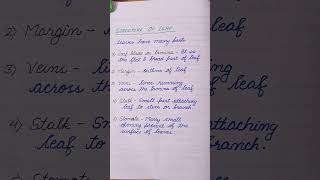 STRUCTURE OF LEAF
Leaves have many parts
1) Leaf blade or Lamina - It is
the flat & broad part of leaf
2) Margin - outline of leaf
3) Veins - Lines running
across the lamina of leaf
4) Stalk - Small part attaching
leaf to stem or branch.
5) Stomata - Many small
opening present of the
surface of leaves.
2) Margin -
3) Veins - Li
across
4) Stalk -
leaf to
leaf
attaching
branch.